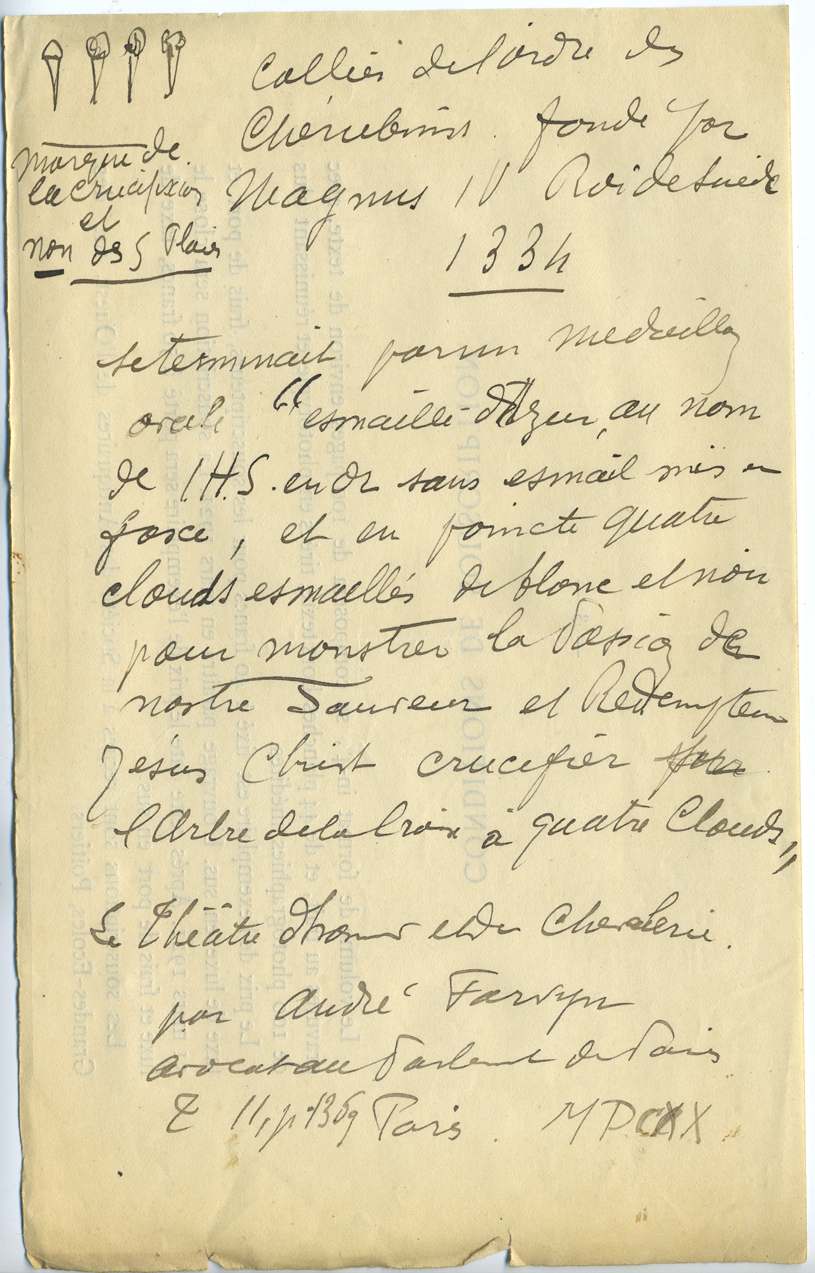 Collier de l'ordre des
Chérubins. fondé par
Magnus IV Roi de Suède
1334
marque de
la crucifixion
et
non des 5 Plaies
se terminait par un médaillon
ovale "esmaillé d'Azur, au nom
de I.H.S. en or sans esmail mis en
fasce, et en poincte quatre
clouds esmaillés de blanc et noir
pour monstrer la Passion de
nostre Sauveur et Rédempteur
Jésus Christ crucifier
l'Arbre de la Croix à quatre Clouds,,
Le Théâtre d'honneur et de Chevalerie.
par André Favyn
avocat au Parlement de Paris
T II, p. 1369 Paris. MDCXX
CONDITIONS DE SOUSCRIPTION
Grandes-Ecoles, Poitiers